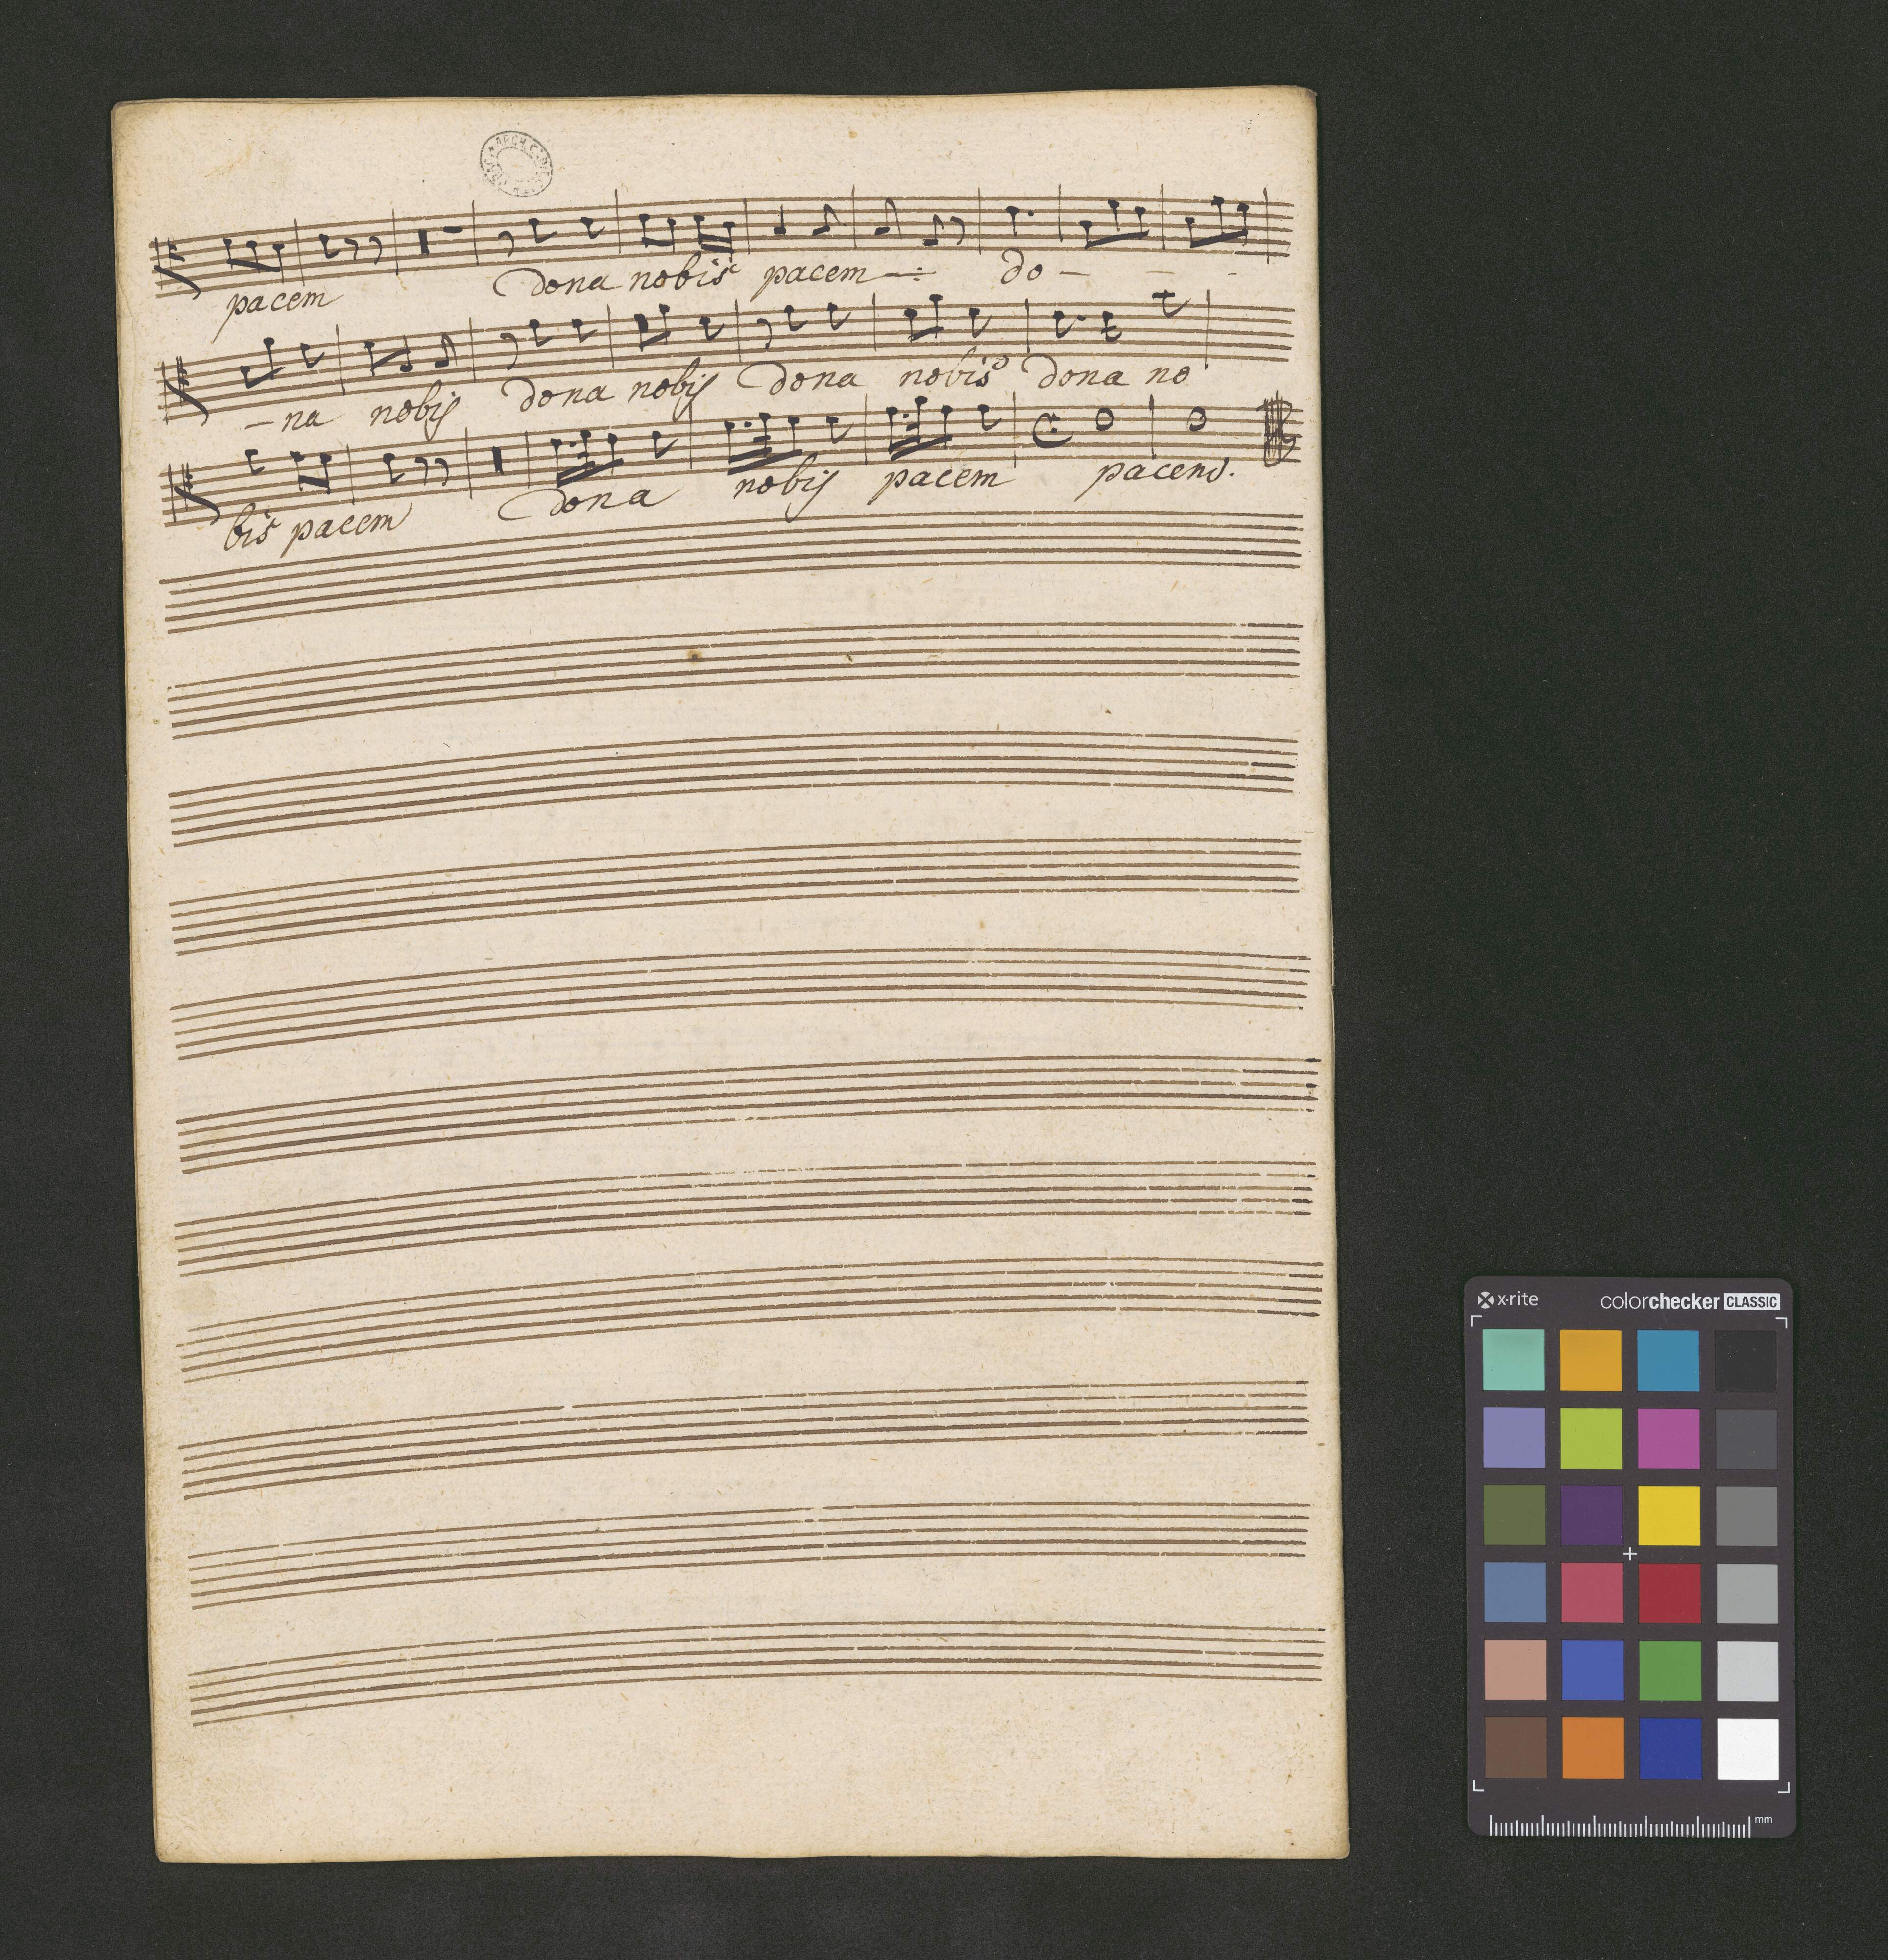 pacem dona nobis pacem -: do - - -
- na nobis dona nobis dona nobis dona no
bis pacem dona nobis pacem pacem.
x·rite colorchecker CLASSIC
mm